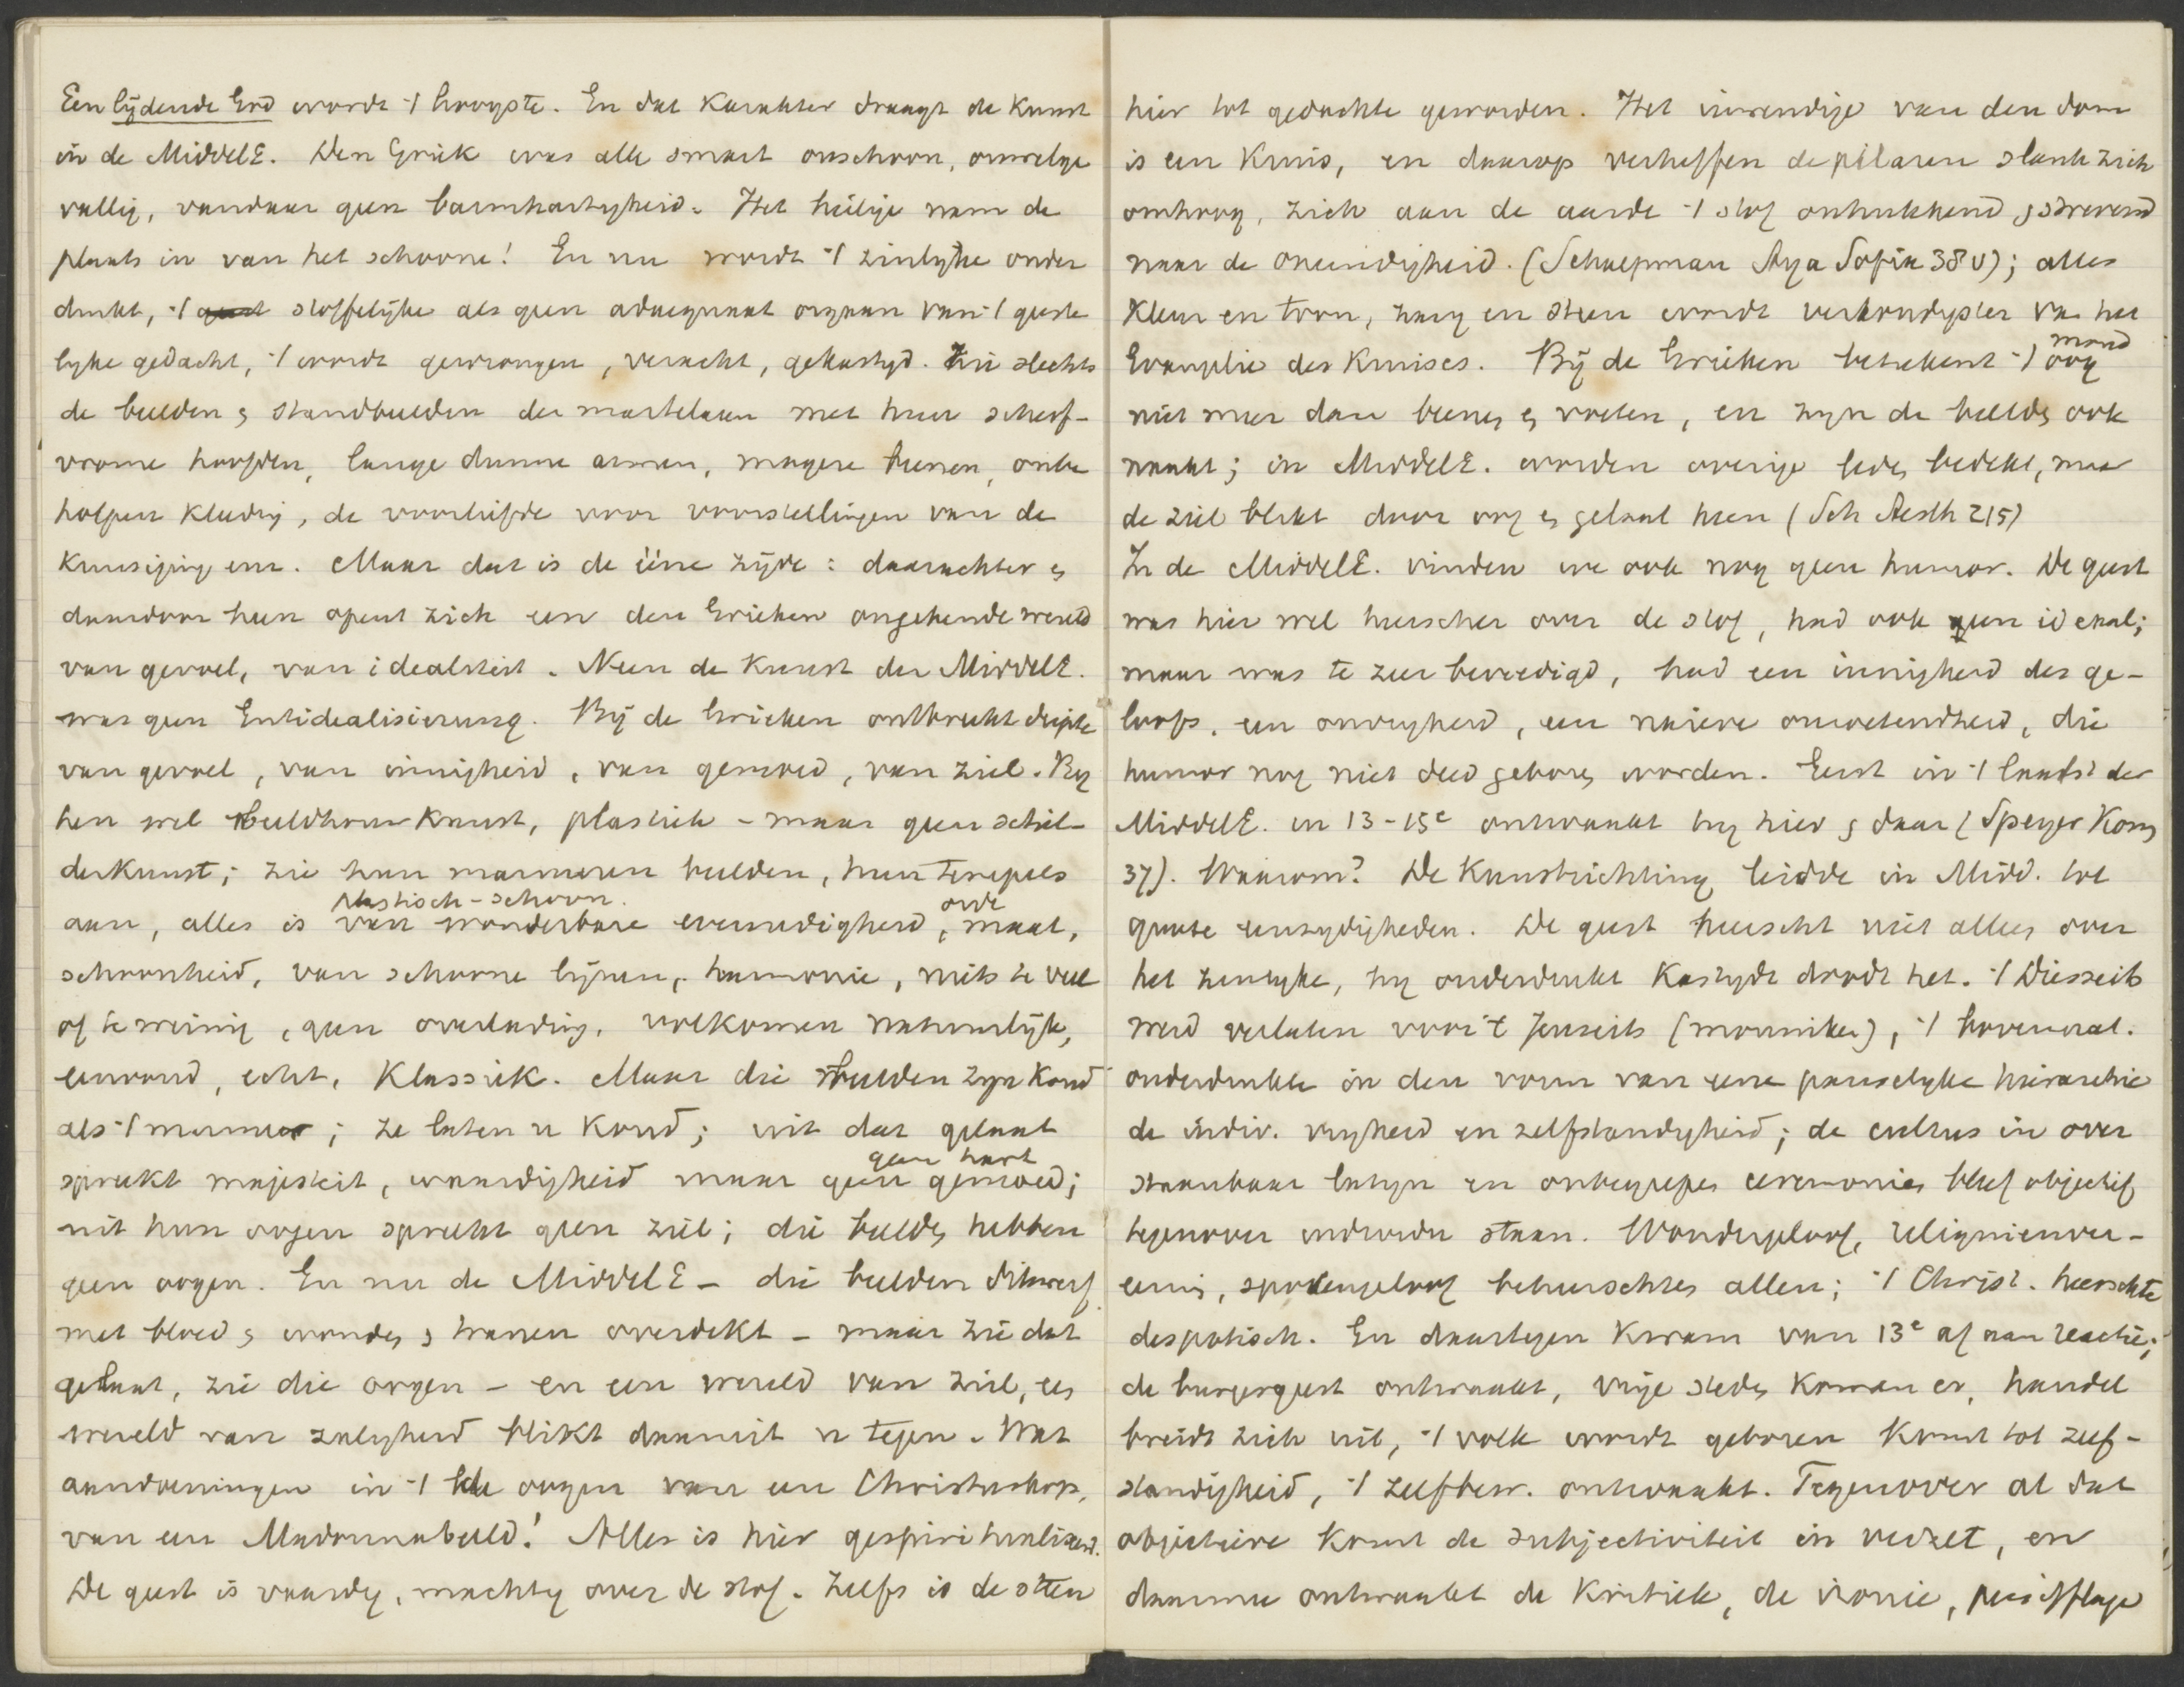 Een lijdende God wordt 't hoogste. En dat karakter draagt de kunst
in de MiddelE. Den Griek was alle smart onschoon, onwelge
vallig, vandaar geen barmhartigheid. Het heilige nam de
plaats in van het schoone! En nu wordt 't zinlijke onder
drukt, 't geest stoffelijke als geen adaequaat orgaan van 't geeste
lijke gedacht, 't wordt gewrongen, veracht, gekastijd. Zie slechts
de beelden & standbeelden der martelaren met hun scherf-
vrome hoofden, lange dunne armen, magere beenen, onbe
holpen kleeding, de voorliefde voor voorstellingen van de
kruisiging enz. Maar dat is de ééne zijde: daarachter &
daardoor heen opent zich een den Grieken ongekende wereld
van gevoel, van idealiteit. Neen de kunst der MiddelE.
was geen Entidealisierung. Bij de Grieken ontbreekt diepte
van gevoel, van innigheid, van gemoed, van ziel. Bij
hen wel beeldhouwkunst, plastiek - maar geen schil-
derkunst; zie hun marmeren beelden, hun tempels
plastisch-schoon. orde
aan, alles is van wonderbare evenredigheid, maat,
schoonheid, van schoone lijnen, harmonie, niets te veel
of te weinig, geen overlading, volkomen natuurlijk,
eenvoud, echt, klassiek. Maar die beelden zijn koud
als 't marmer; ze laten u koud; uit dat gelaat
geen hart
spreekt majesteit, waardigheid maar geen gemoed;
uit hun oogen spreekt geen ziel; die beelden hebben
geen oogen. En nu de MiddelE - die beelden dikwerf
met bloed & wonden & tranen overdekt - maar zie dat
gelaat, zie die oogen - en een wereld van ziel, een
wereld van zaligheid blikt daaruit u tegen. Wat
aandoeningen in 't oogen van een Christuskop,
van een Madonnabeeld! Alles is hier gespiritualiseerd.
De geest is vaardig, machtig over de stof. Zelfs is de steen
hier tot gedachte geworden. Het inwendige van den dom
is een kruis, en daarop verheffen de pilaren slank zich
omhoog, zich aan de aarde 't stof onttrekkend, & strevend
naar de oneindigheid. (Schaepman Aya Sofia 38v); alles
kleur en toon, zang en steen wordt verkondigster van het
mond
Evangelie des Kruises. Bij de Grieken beteekent 't oog
niet meer dan beenen & voeten, en zijn de beelden ook
naakt; in MiddelE. worden overige leden bedekt, maar
de ziel blikt door oog & gelaat heen (Sch Aesth 215)
In de MiddelE. vinden we ook nog geen humor. De geest
was hier wel heerscher over de stof, had ook een ideaal;
maar was te zeer bevredigd, had een innigheid des ge-
loofs, een onvrijheid, een naieve onwetendheid, die
humor nog niet deed geboren worden. Eerst in 't laatst der
MiddelE. in 13-15e ontwaakt hij hier & daar (Speyer Kom
37). Waarom? De kunstrichting leidde in Midd. tot
groote eenzijdigheden. De geest heerscht niet alleen over
het zinlijke, hij onderdrukt kastijdt doodt het. 't Diesseits
werd verlaten voor 't Jenseits (monniken), 't bovennat.
onderdrukte in den vorm van eene pauselijke hierarchie
de indiv. vrijheid en zelfstandigheid; de cultus in over
staanbaar latijn en onbegrepen ceremonies bleef objectief
tegenover iedereen staan. Wondergeloof, reliquienver-
eering, spokengeloof beheerschten allen; 't Christ. heerschte
despotisch. En daartegen kwam van 13e af aan reactie;
de burgergeest ontwaakt, vrije steden komen er, handel
breidt zich uit, 't volk wordt geboren komt tot zelf-
standigheid, 't zelfbew. ontwaakt. Tegenover al dat
objectieve komt de subjectiviteit in verzet, en
daarmee ontwaakt de kritiek, de ironie, persifflage